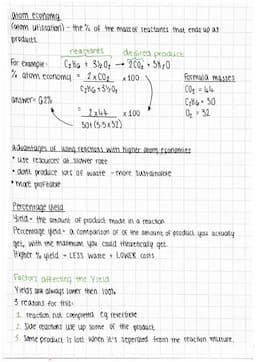 atom economy
(atom utilisation) - the % of the mass of reactants that ends up as
products.
reactants desired product
For example - C₂H₆ + 3½O₂ → 2CO₂ + 3H₂O
% atom economy = 2 x CO₂ x100
C₂H₆ + 3½O₂
formula masses
CO₂ = 44
C₂H₆ = 30
O₂ = 32
answer = 62%
= 2x44 x 100
30 + (3.5x32)
advantages of using reactions with higher atom economies
• use resources at slower rate
• don't produce lots of waste - more sustainable
• more profitable
Percentage yield
Yield - the amount of product made in a reaction
Percentage yield - a comparison of of the amount of product you actually
get, with the maximum you could theoretically get.
Higher % yield → LESS waste + LOWER costs
Factors affecting the Yield
Yields are always lower then 100%
3 reasons for this:
1. reaction not completed eg reversible
2. Side reactions use up some of the product
3. Some product is lost when it's seperated from the reaction mixture.